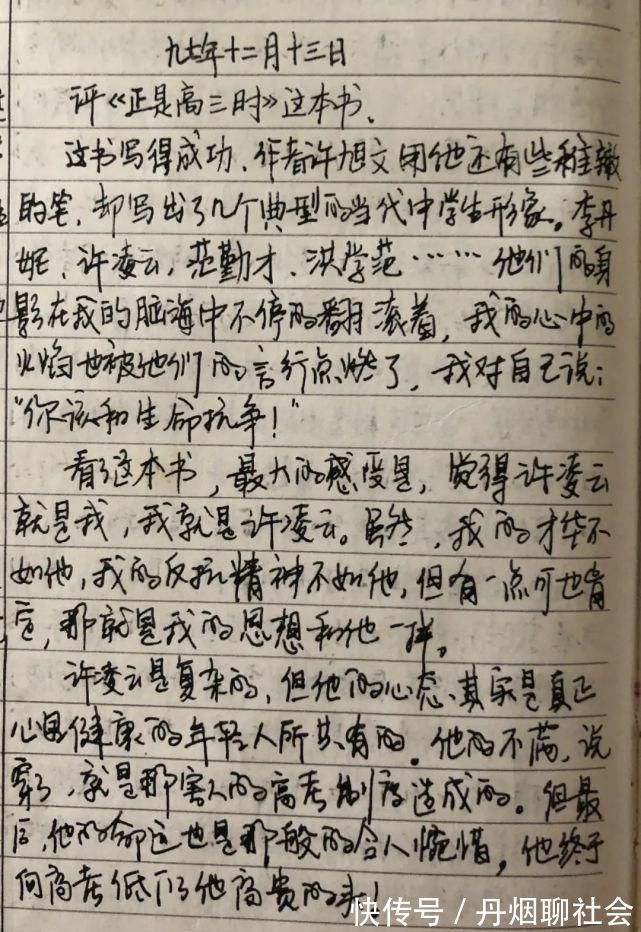 九七年十二月十三日
评《正是高三时》这本书、
这书写得成功、作者许旭文用他还有些稚嫩
的笔，却写出了几个典型的当代中学生形象。李丹
妮、许凌云，范勤才、洪学范……他们的身
影在我的脑海中不停的翻滚着，我的心中的
火焰也被他们的言行点燃了，我对自己说：
“你该和生命抗争！”
看了这本书，最大的感受是，觉得许凌云
就是我，我就是许凌云。虽然，我的才华不
如他，我的反抗精神不如他，但有一点可也肯
定，那就是我的思想和他一样。
许凌云是复杂的，但他的心态、其实是真正
心里健康的年轻人所共有的。他的不满，说
穿了，就是那害人的高考制度造成的。但最
后，他的命运也是那般的令人惋惜，他终于
向高考低下了他高贵的头！
快传号/丹烟聊社会